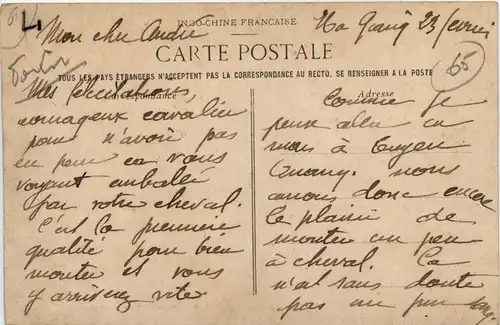 INDO-CHINE FRANÇAISE
Ha Giang 23 février
Mon cher André
CARTE POSTALE
65
TOUS LES PAYS ÉTRANGERS N'ACCEPTENT PAS LA CORRESPONDANCE AU RECTO. SE RENSEIGNER A LA POSTE
Correspondance
Adresse
Mes félicitations,
courageux cavalier
pour n'avoir pas
eu peur en vous
voyant emballé
par votre cheval.
C'est la première
qualité pour bien
monter et vous
y arriverez vite
Comme je
peux aller ce
mois à Tuyen
Quang. nous
aurons donc encore
le plaisir de
monter un peu
à cheval. Ça
n'ai sans doute
pas un peu